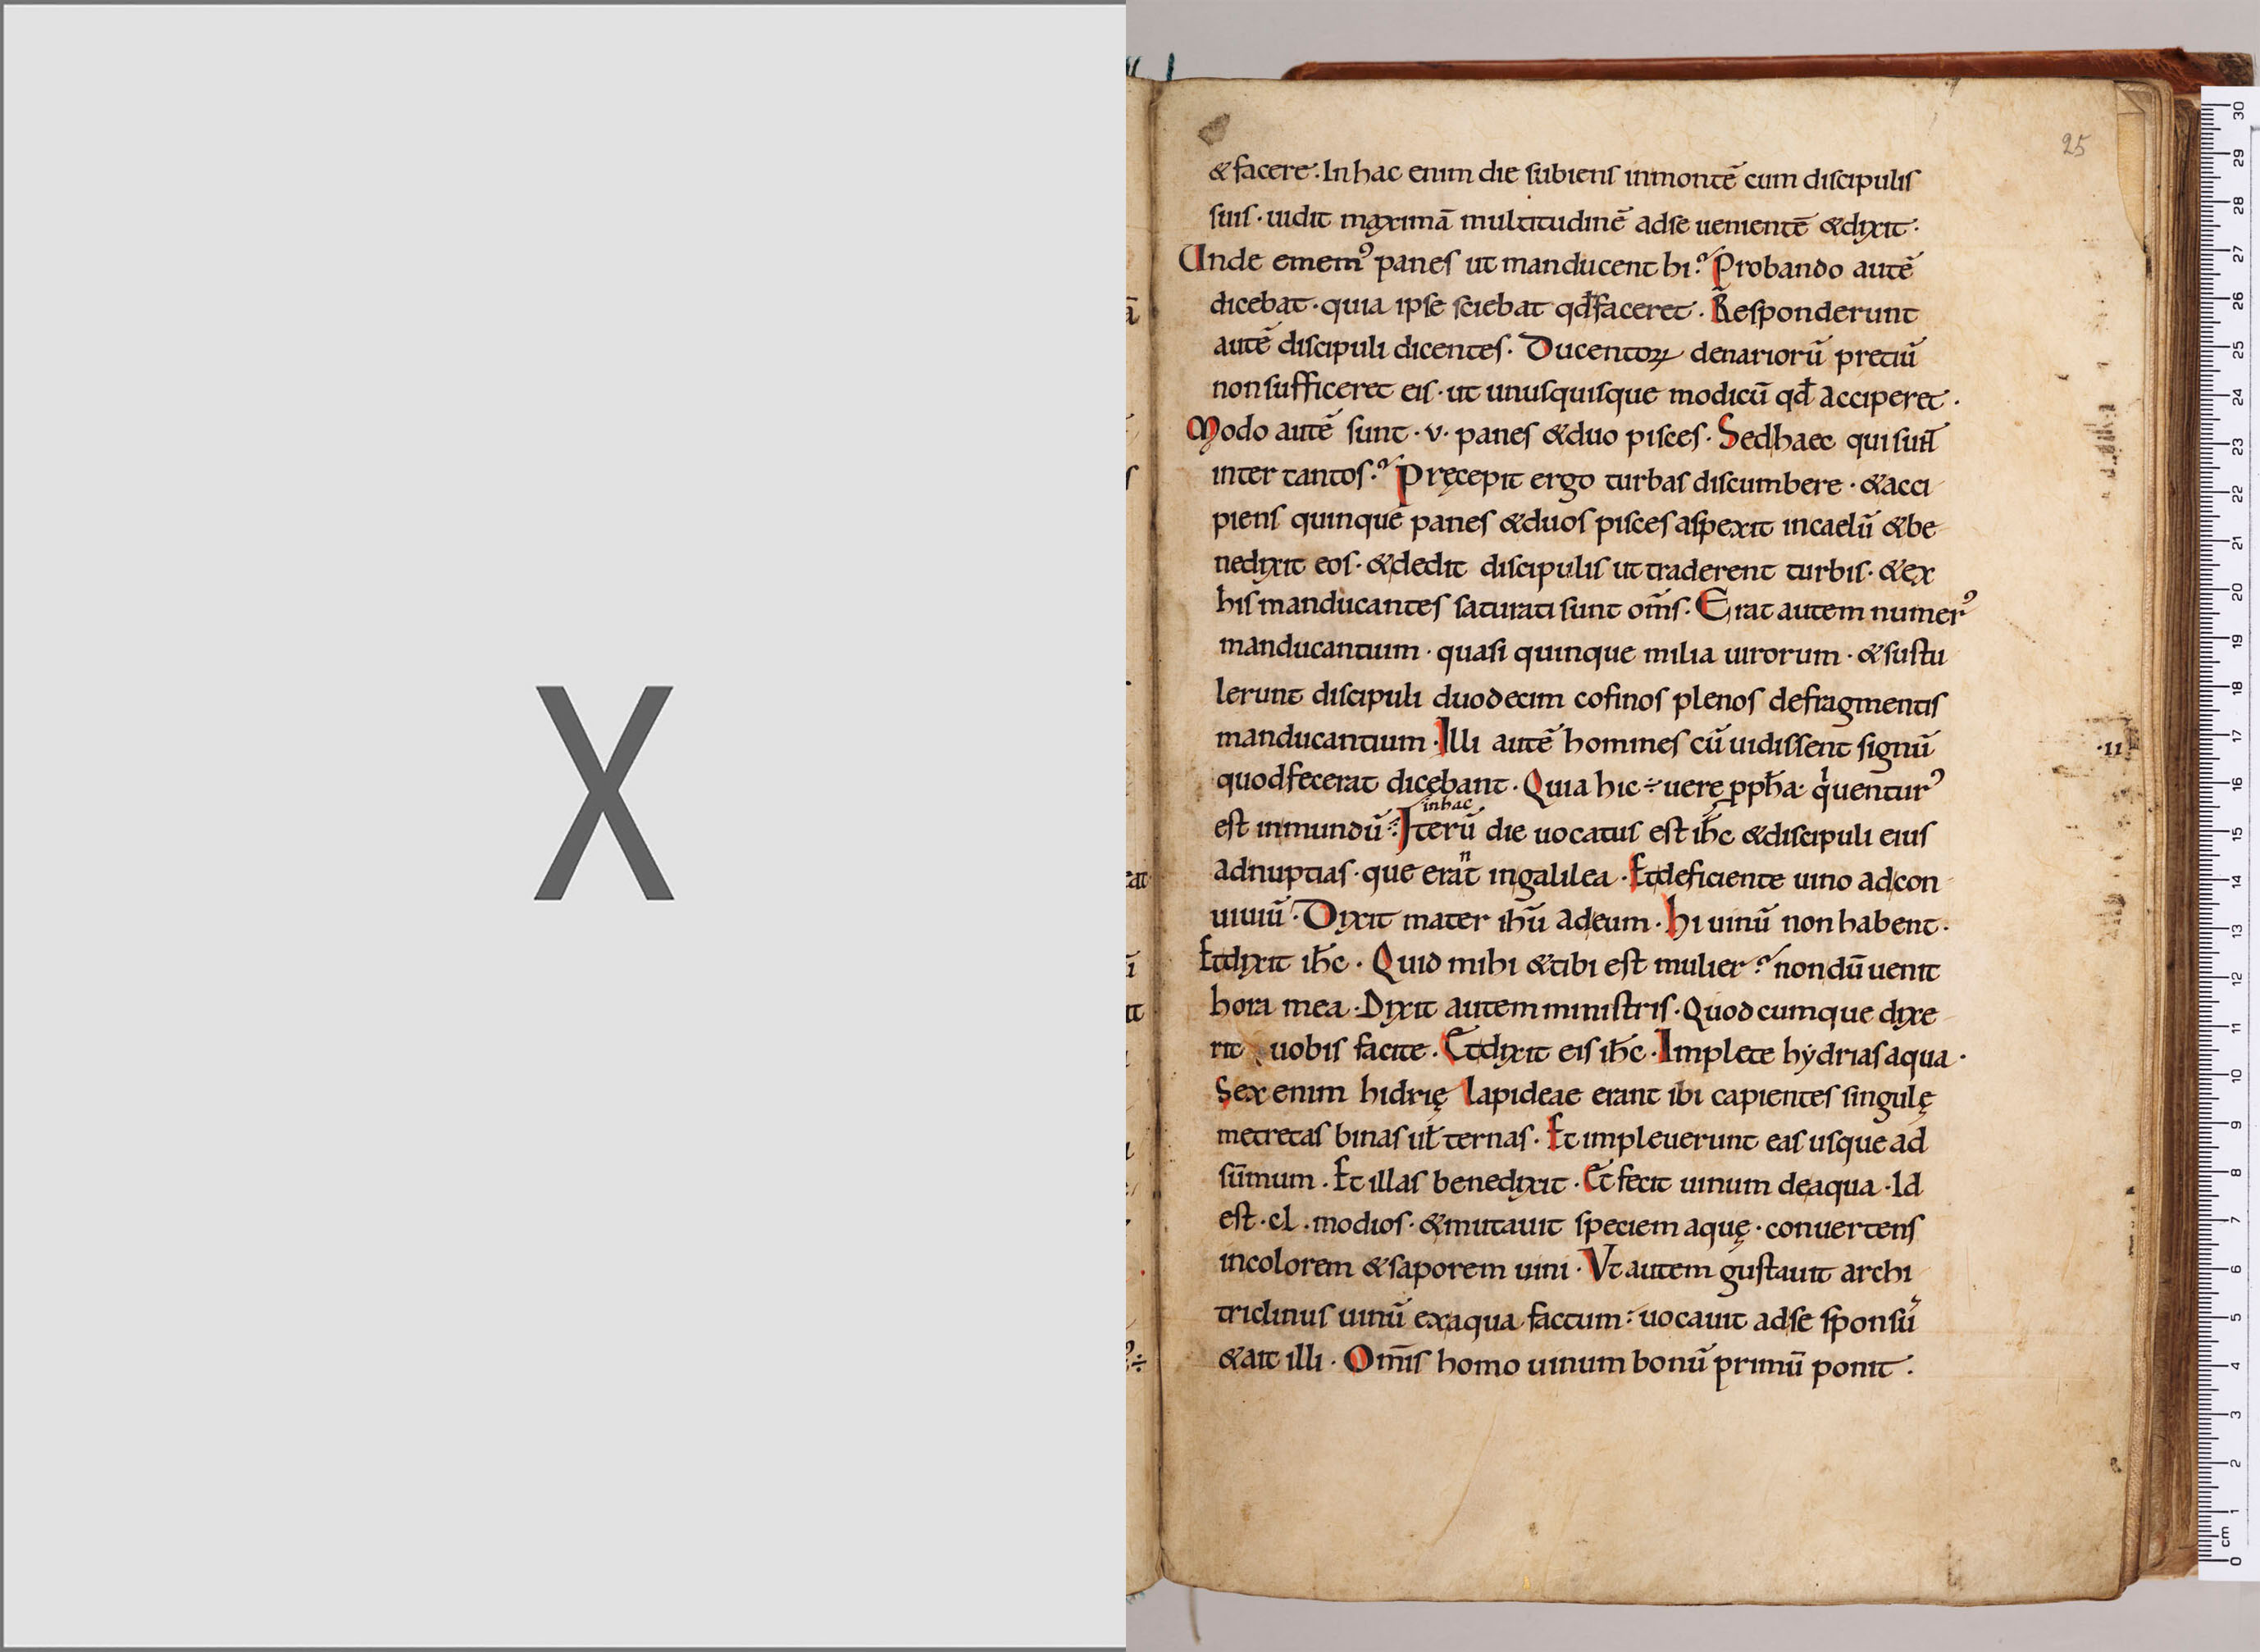 X
25
& facere. In hac enim die subiens inmontē cum discipulis
suis · uidit maximā multitudinē adse uenientē &dixit ·
Unde emem⁹ panes ut manducent hi? Probando autē
dicebat · quia ipse sciebat qđ faceret · Responderunt
autē discipuli dicentes · Ducentoꝝ denariorū pretiū
nonsufficeret eis · ut unusquisque modicū qđ acciperet ·
Modo autē sunt · v · panes &duo pisces · Sedhaec qui sunt̄
inter tantos? Pręcepit ergo turbas discumbere · &acci
piens quinque panes &duos pisces aspexit incaelū &be
nedixit eos · &dedit discipulis ut traderent turbis · &ex
his manducantes saturati sunt om̄s · Erat autem numer⁹
manducantium · quasi quinque milia uirorum · &sustu
lerunt discipuli duodecim cofinos plenos defragmentis
manducantium · Illi autē homines cū uidissent signū
·11
quodfecerat dicebant · Quia hic ÷ uere ꝓph̄a · qͥuentur⁹
inhac
est inmundū · Iterū die uocatus est ih̄c &discipuli eius
n
adnuptias · que erat ingalilea · Etdeficiente uino adcon
uiuiū · Dixit mater ih̄u adeum · hi uinū non habent ·
Etdixit ih̄c · Quid mihi &tibi est mulier? nondū uenit
hora mea · Dixit autem ministris · Quodcumque dixe
rit uobis facite · Etdixit eis ih̄c · Implete hẏdrias aqua ·
Sex enim hidrię lapideae erant ibi capientes singulę
metretas binas uł ternas · Et impleuerunt eas usque ad
sūmum · Et illas benedixit · Et fecit uinum deaqua · Id
est · cl · modios · &mutauit speciem aquę · conuertens
incolorem &saporem uini · Vt autem gustauit archi
triclinus uinū exaqua factum · uocauit adse sponsū
&ait illi · Om̄is homo uinum bonū primū ponit ·
0 cm 1 2 3 4 5 6 7 8 9 10 11 12 13 14 15 16 17 18 19 20 21 22 23 24 25 26 27 28 29 30